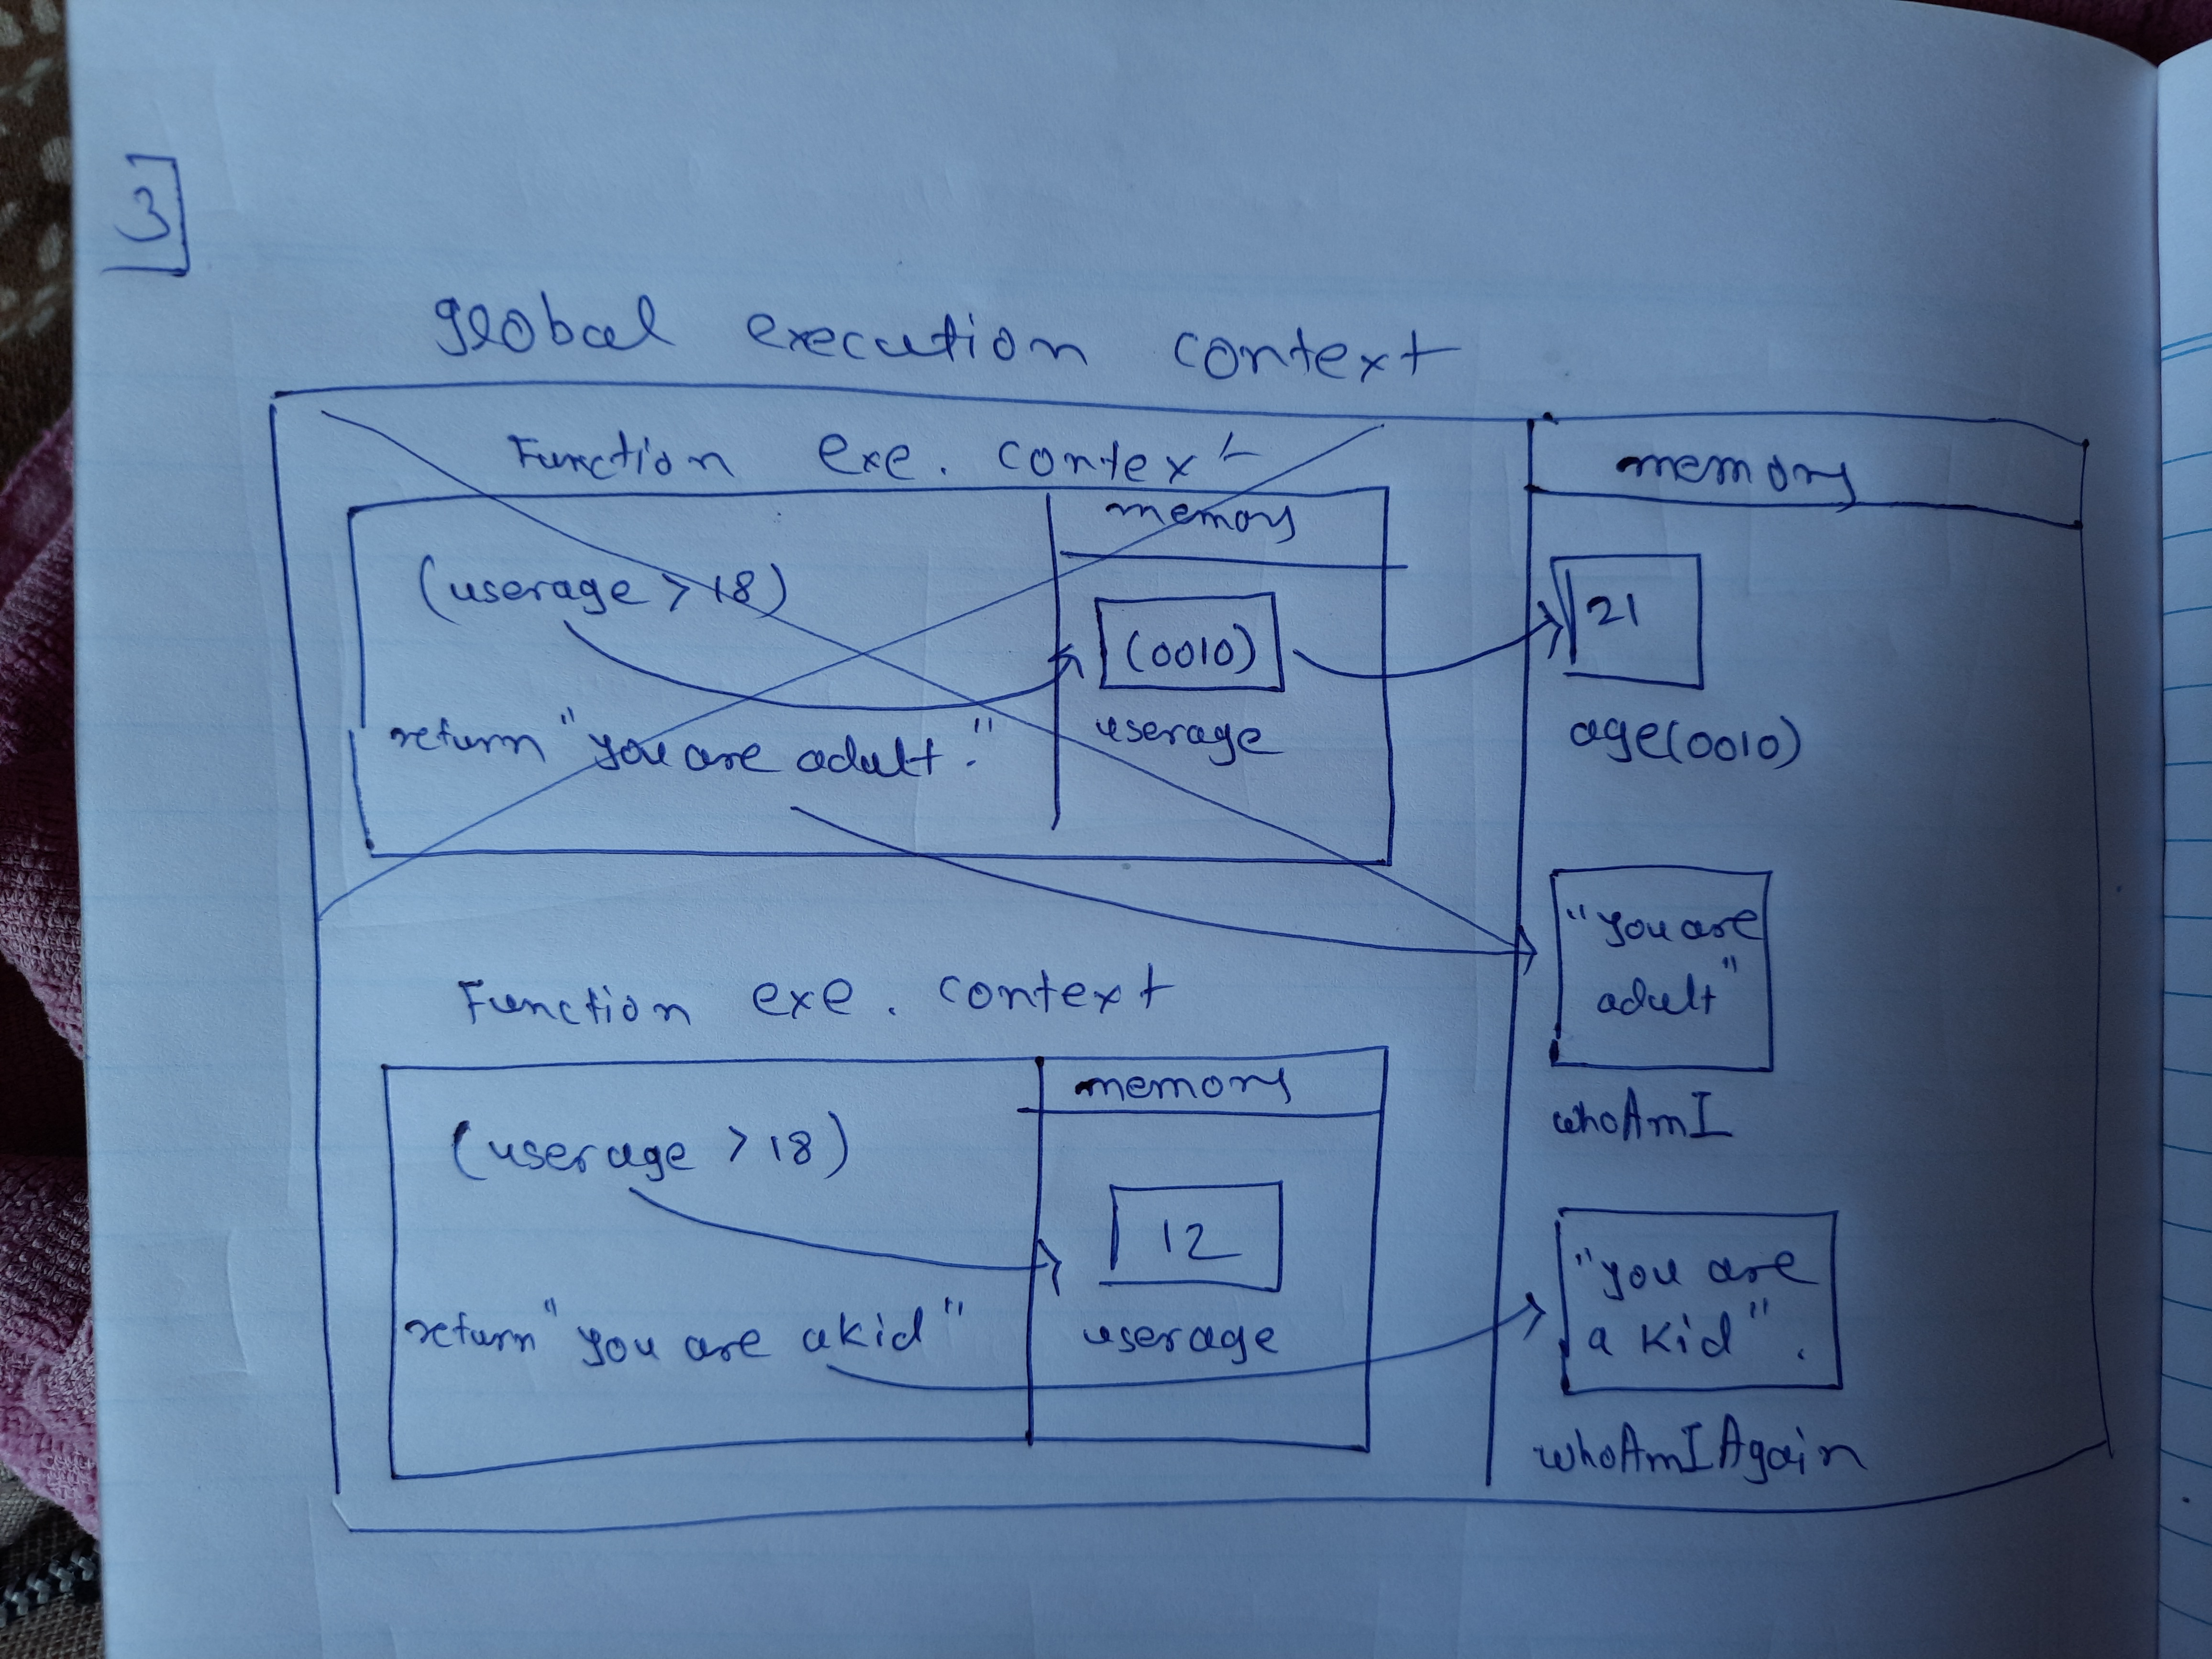 3
global execution context
Function exe. context
memory
(userage > 18)
(0010)
return "you are adult."
userage
Function exe. context
memory
(userage > 18)
12
return "you are a kid"
userage
memory
21
age(0010)
"you are
adult"
whoAmI
"you are
a kid".
whoAmIAgain